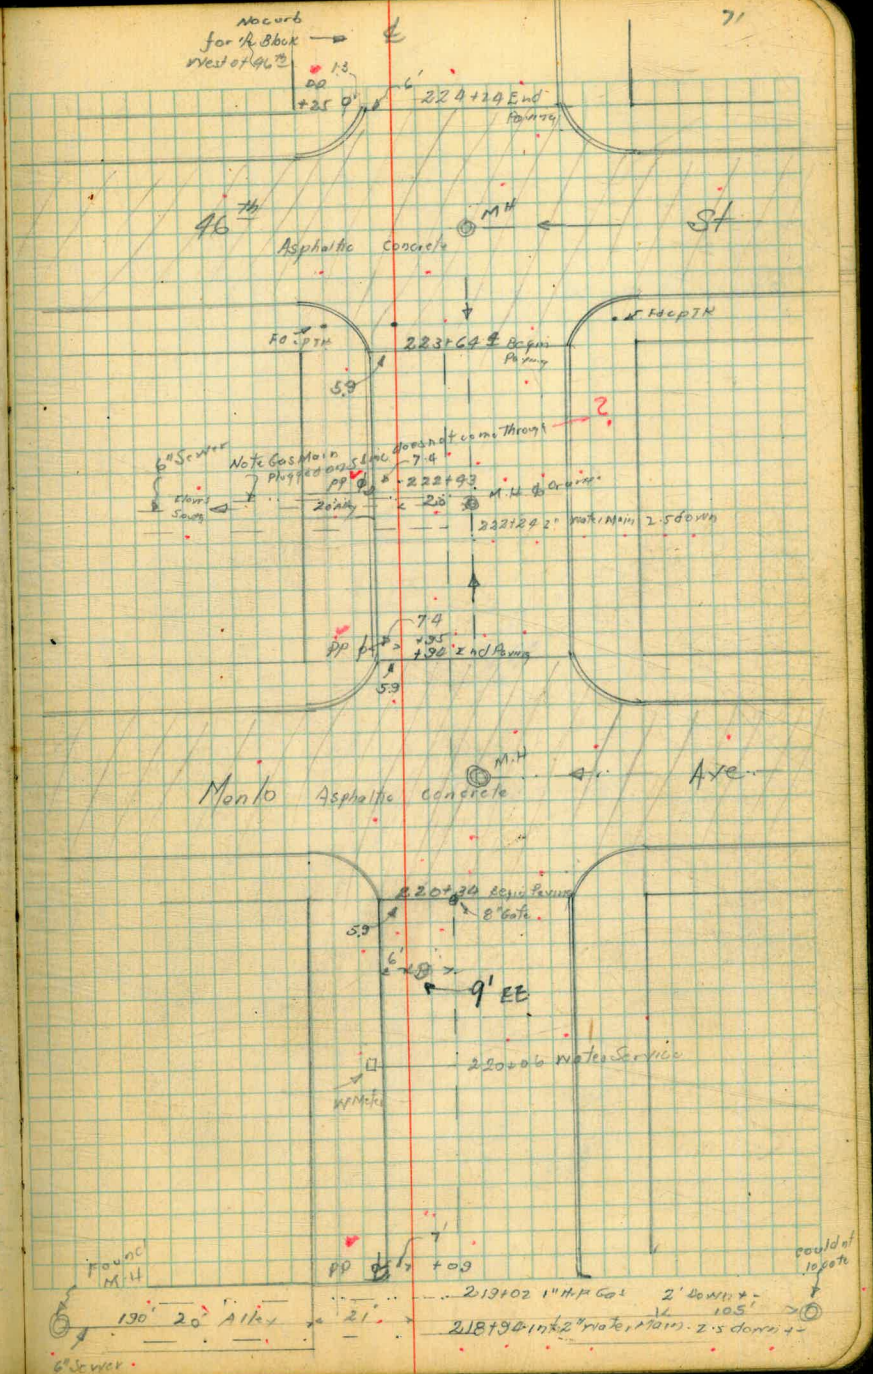 71
No curb
for 1/2 Block
West of 46th
℄
1.3
6'
PP
+25
224+24 End
Paving
46th
St
MH
Asphaltic Concrete
Fd cp TK
Fd cp TK
223+64 Begin
Paving
5.9
?
6" Sewer
Note Gas Main does not come Through
Plugged on S Line
7.4
PP
222+43
Flows
South
20' Alley
20
M.H
222+24 2" Water Main 2.5 down
7.4
PP
+95
+90 End Paving
5.9
M.H
Menlo
Ave.
Asphaltic Concrete
220+30 Begin Paving
8" Gate
5.9
6'
9' EE
220+06 Water Service
W Meter
7'
PP
+09
Found
M.H
could not
locate
219+02 1" H.P Gas 2' Down +-
190' 20' Alley
21'
105'
218+94 Int 2" Water Main 2.5 down +-
6" Sewer